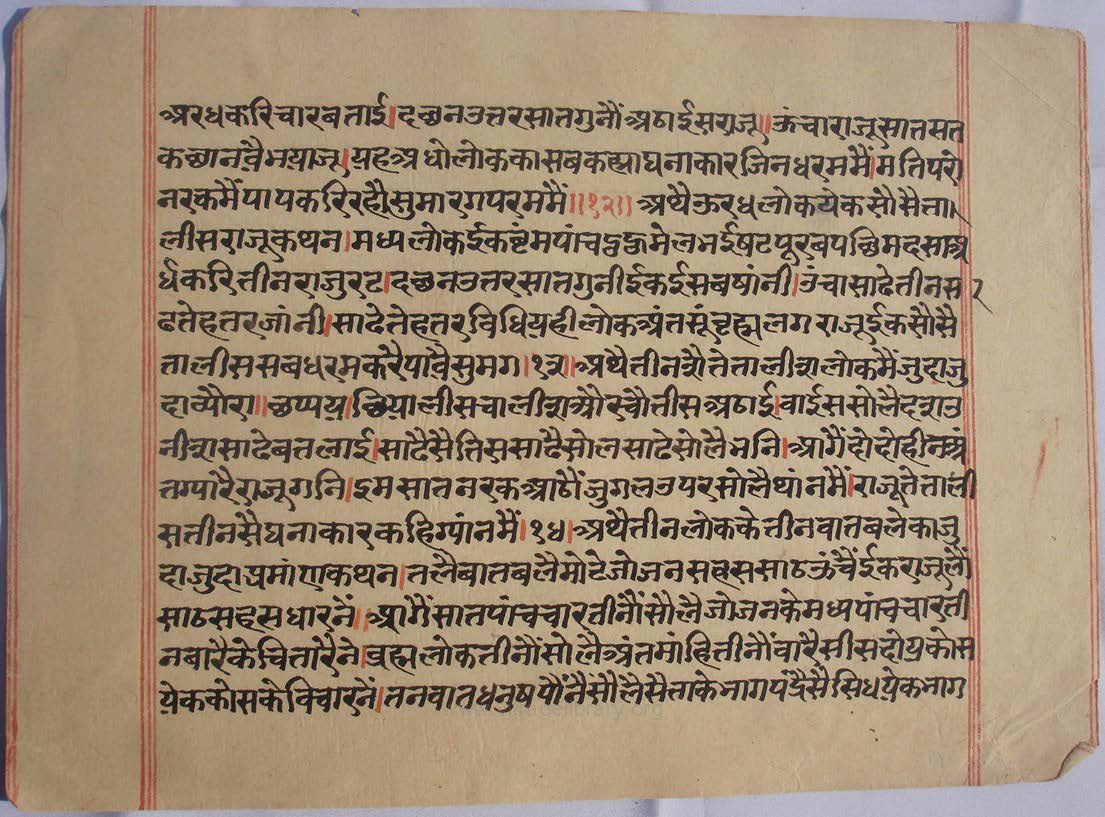 अरधकरिचारबताई।दच्छनउत्तरसातगुनौंअठाईसराजू॥ऊंचाराजूसातसत
कछानवैभयाजू।यहअधोलोककासबकह्याघनाकारजिनधरममैं।मतिपरो
नरकमैंपापकरिरहौसुमारगपरममैं॥१२॥ अथैऊरधलोकयेकसौसैता
लीसराजूकथन।मध्यलोकईकष्टंमपांचब्रह्ममेलभईषटपूरबपच्छिमदसाअ
र्धकरितीनराजुरट।दच्छनउत्तरसातगुनीईकईसबषांनी।उंचासाढेतीनस
ढतेहतरजांनी।साढेतेहतरविधियहीलोकअंतसूंब्रह्मलगराजूईकसौसै
तालीससबधरमकरैपावैसुमग।१३॥अथैतीनसौतेतालीसलोकमैंजुदाजु
दाव्यौरा॥छप्पय।छियालीसचालीसऔरचौतीसअठाई।बाईससोलैदसउ
नीससाढेबतलाई।साढैसैतिससाढैसोलसाढेसोलैभनि।आगैंदोदोहीनअं
तग्यारैराजूगनि।इमसातनरकआठौंजुगलउपरसोलैथांनमैं।राजूतेताली
सतीनसैघनाकारकहिग्यांनमैं।१४।अथैतीनलोककेतीनवातबलेकाजु
दाजुदाप्रमांणकथन।तलैबातबलैमोटेजोजनसहससाठऊंचैंईकराजूलौं
साठसहसधारनें॥आगैंसातपांचचारतीनौंसौलैजोजनकेमध्यपांचचारती
नबारैकेचितारैनें।ब्रह्मलोकतीनौंसोलैअंतमांहितीनौंबारैसीसदोयकोस
येककोसकेविचारनें।तनवातधनुषपौंनैसौलैसैताकेभागपंद्रैसैसिधयेकभाग